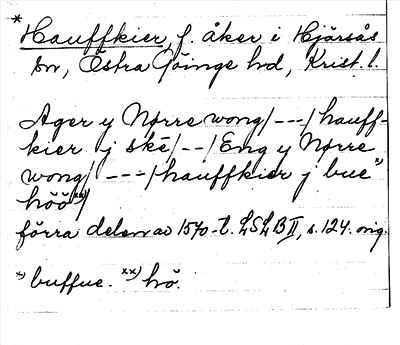 * Hauffkier, f. åker i Hjärsås
sn, Östra Göinge hd, Krist. l.
Ager y Nørre wong/---/hauff-
kier j ské/--/Eng y Nørre
wong/---/hauffkier j bue x)
höö xx)/
förra delen av 1570-t. LSLB II, s. 124. orig.
x) buffue. xx) hö.